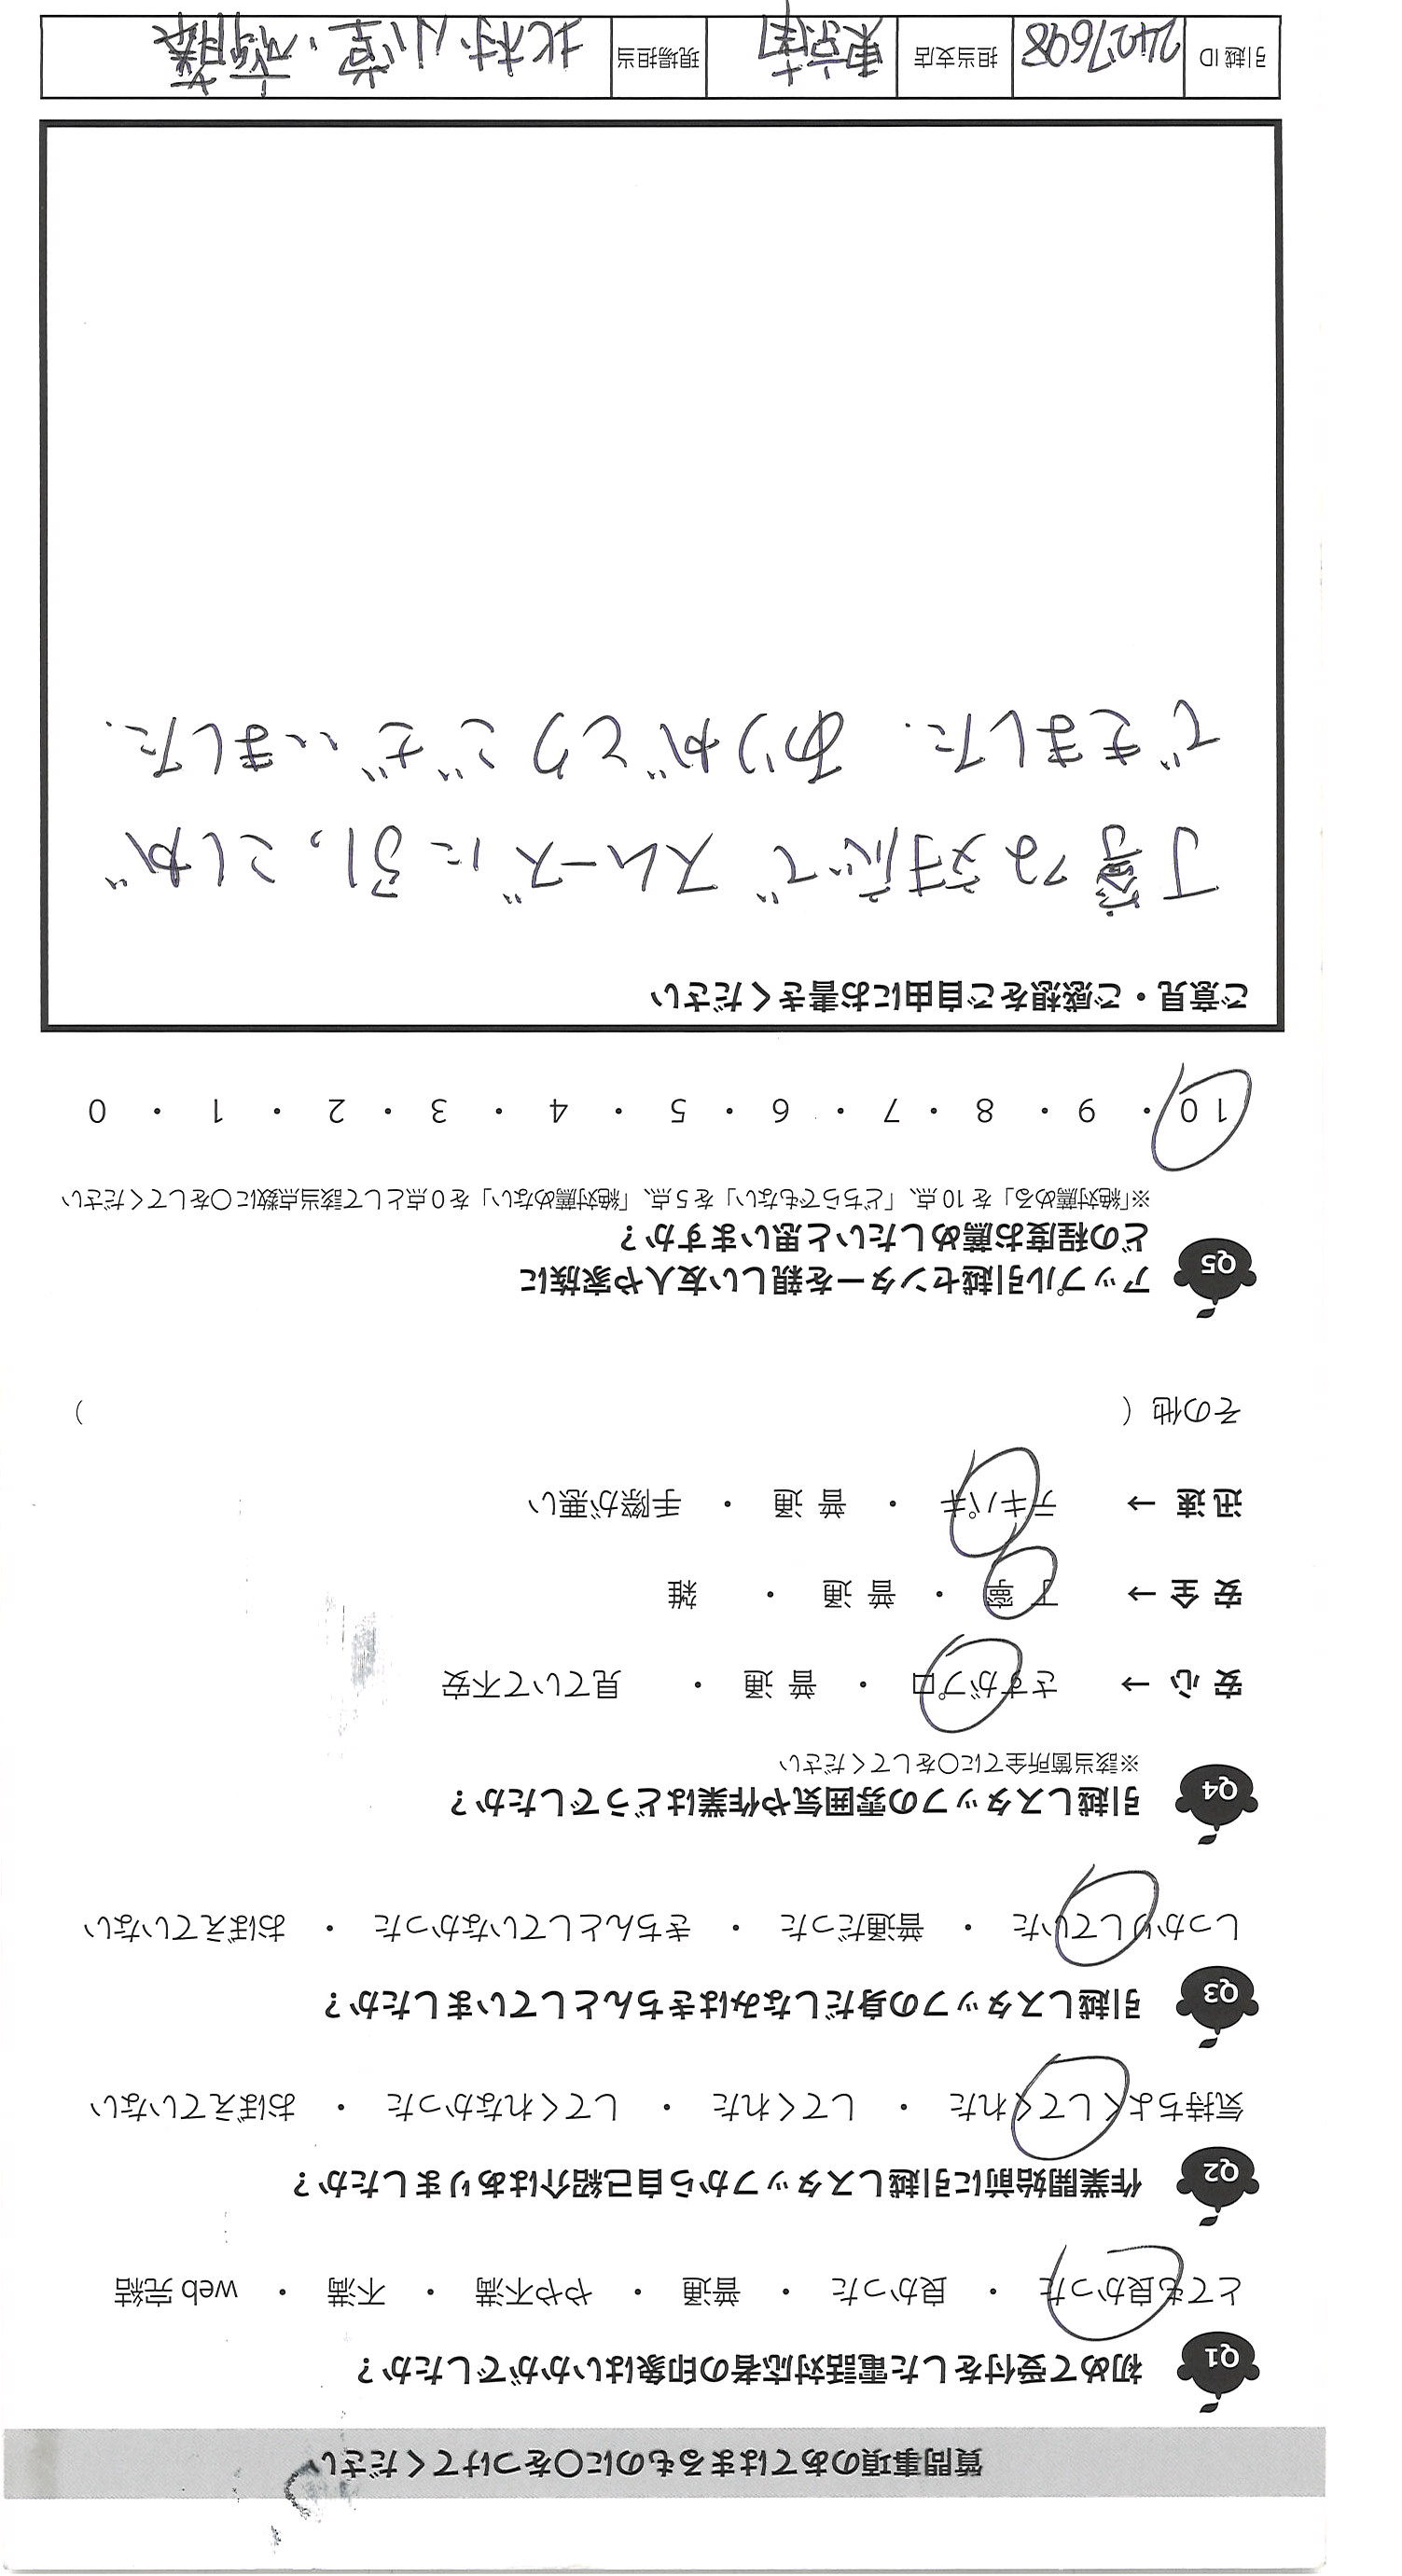 質問事項のあてはまるものに〇をつけてください
Q1 初めて受付をした電話対応者の印象はいかがでしたか？
とても良かった ・ 良かった ・ 普通 ・ やや不満 ・ 不満 ・ web 完結
Q2 作業開始前に引越しスタッフから自己紹介はありましたか？
気持ちよくしてくれた ・ してくれた ・ してくれなかった ・ おぼえていない
Q3 引越しスタッフの身だしなみはきちんとしていましたか？
しっかりしていた ・ 普通だった ・ きちんとしていなかった ・ おぼえていない
Q4 引越しスタッフの雰囲気や作業はどうでしたか？
※該当箇所全てに〇をしてください
安 心 → さすがプロ ・ 普 通 ・ 見ていて不安
安 全 → 丁 寧 ・ 普 通 ・ 雑
迅 速 → テキパキ ・ 普 通 ・ 手際が悪い
その他（ ）
Q5 アップル引越センターを親しい友人や家族に
どの程度お薦めしたいと思いますか？
※「絶対薦める」を 10 点、「どちらでもない」を 5 点、「絶対薦めない」を 0 点として該当点数に〇をしてください
10 ・ 9 ・ 8 ・ 7 ・ 6 ・ 5 ・ 4 ・ 3 ・ 2 ・ 1 ・ 0
ご意見・ご感想をご自由にお書きください
丁寧な対応で スムーズに引っこしが
できました. ありがとうございました.
引越 ID 2427698 担当支店 東京南 現場担当 北村、小堂、